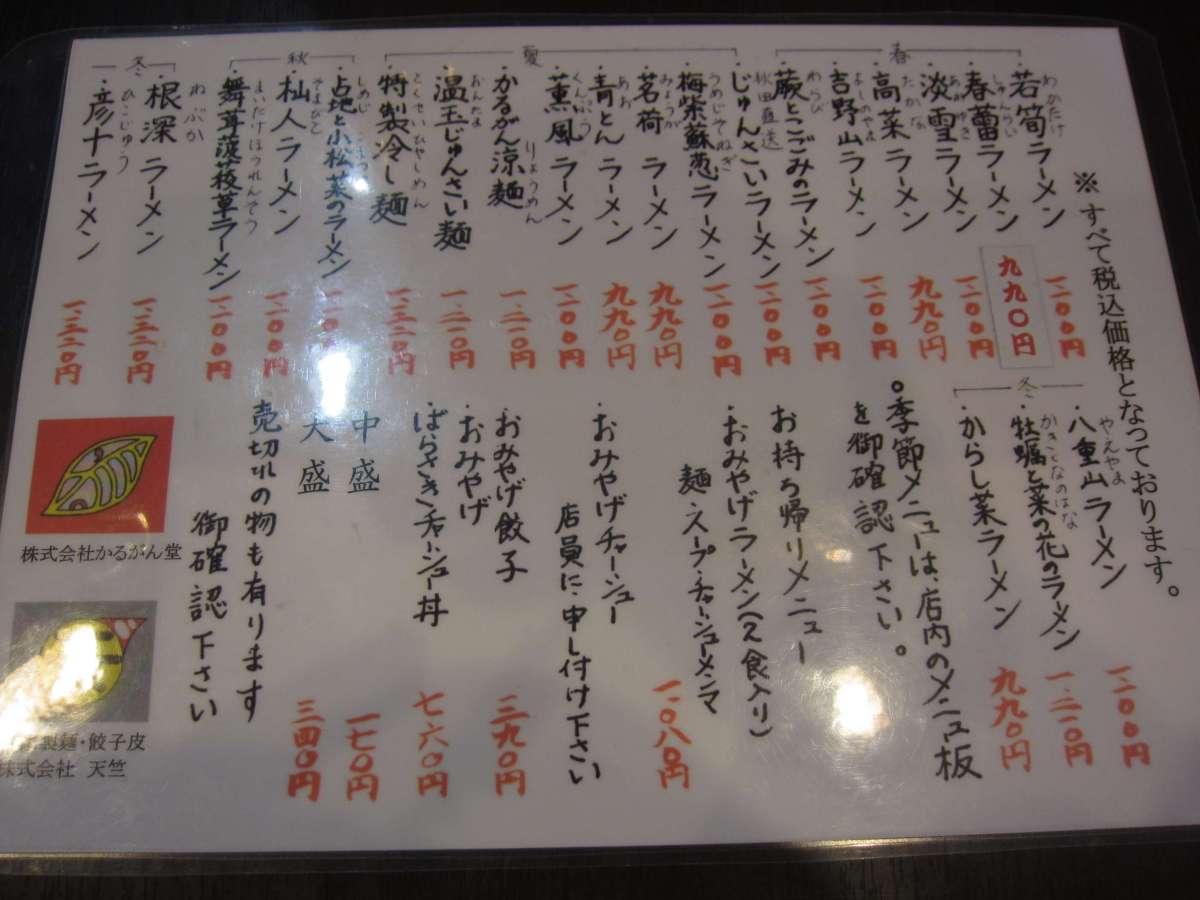 ※すべて税込価格となっております。
春
・若筍ラーメン 一、一〇〇円
わかたけ
・春蕾ラーメン 九九〇円
しゅんらい
・淡雪ラーメン 一、一〇〇円
あわゆき
・高菜ラーメン 九九〇円
たかな
・吉野山ラーメン 一、一〇〇円
よしのやま
・蕨とこごみのラーメン 一、一〇〇円
わらび
夏
・じゅんさいラーメン 一、一〇〇円
秋田直送
・梅紫蘇葱ラーメン 一、一〇〇円
うめじそねぎ
・茗荷ラーメン 九九〇円
みょうが
・青とんラーメン 九九〇円
あお
・薫風ラーメン 一、一〇〇円
くんぷう
・かるがん涼麺 一、二一〇円
りょうめん
・温玉じゅんさい麺 一、二一〇円
おんたま
・特製冷し麺 一、三二〇円
とくせいひやしめん
秋
・占地と小松菜のラーメン 一、一〇〇円
しめじ こまつな
・杣人ラーメン 一、一〇〇円
そまびと
・舞茸菠薐草ラーメン 一、一〇〇円
まいたけほうれんそう
冬
・根深ラーメン 一、三二〇円
ねぶか
・彦十ラーメン 一、三二〇円
ひこじゅう
冬
・八重山ラーメン 一、一〇〇円
やえやま
・牡蠣と菜の花のラーメン 一、二一〇円
かきとなのはな
・からし菜ラーメン 九九〇円
○季節メニューは、店内のメニュー板
を御確認下さい。
お持ち帰りメニュー
・おみやげラーメン(2食入り)
麺・スープ・チャーシューメンマ 一、〇八〇円
・おみやげチャーシュー
店員に申し付け下さい
・おみやげ餃子 三九〇円
・おみやげ
ばらさきチャーシュー丼 七六〇円
中盛 一七〇円
大盛 三四〇円
売切れの物も有ります
御確認下さい
株式会社かるがん堂
製麺・餃子皮
株式会社 天竺